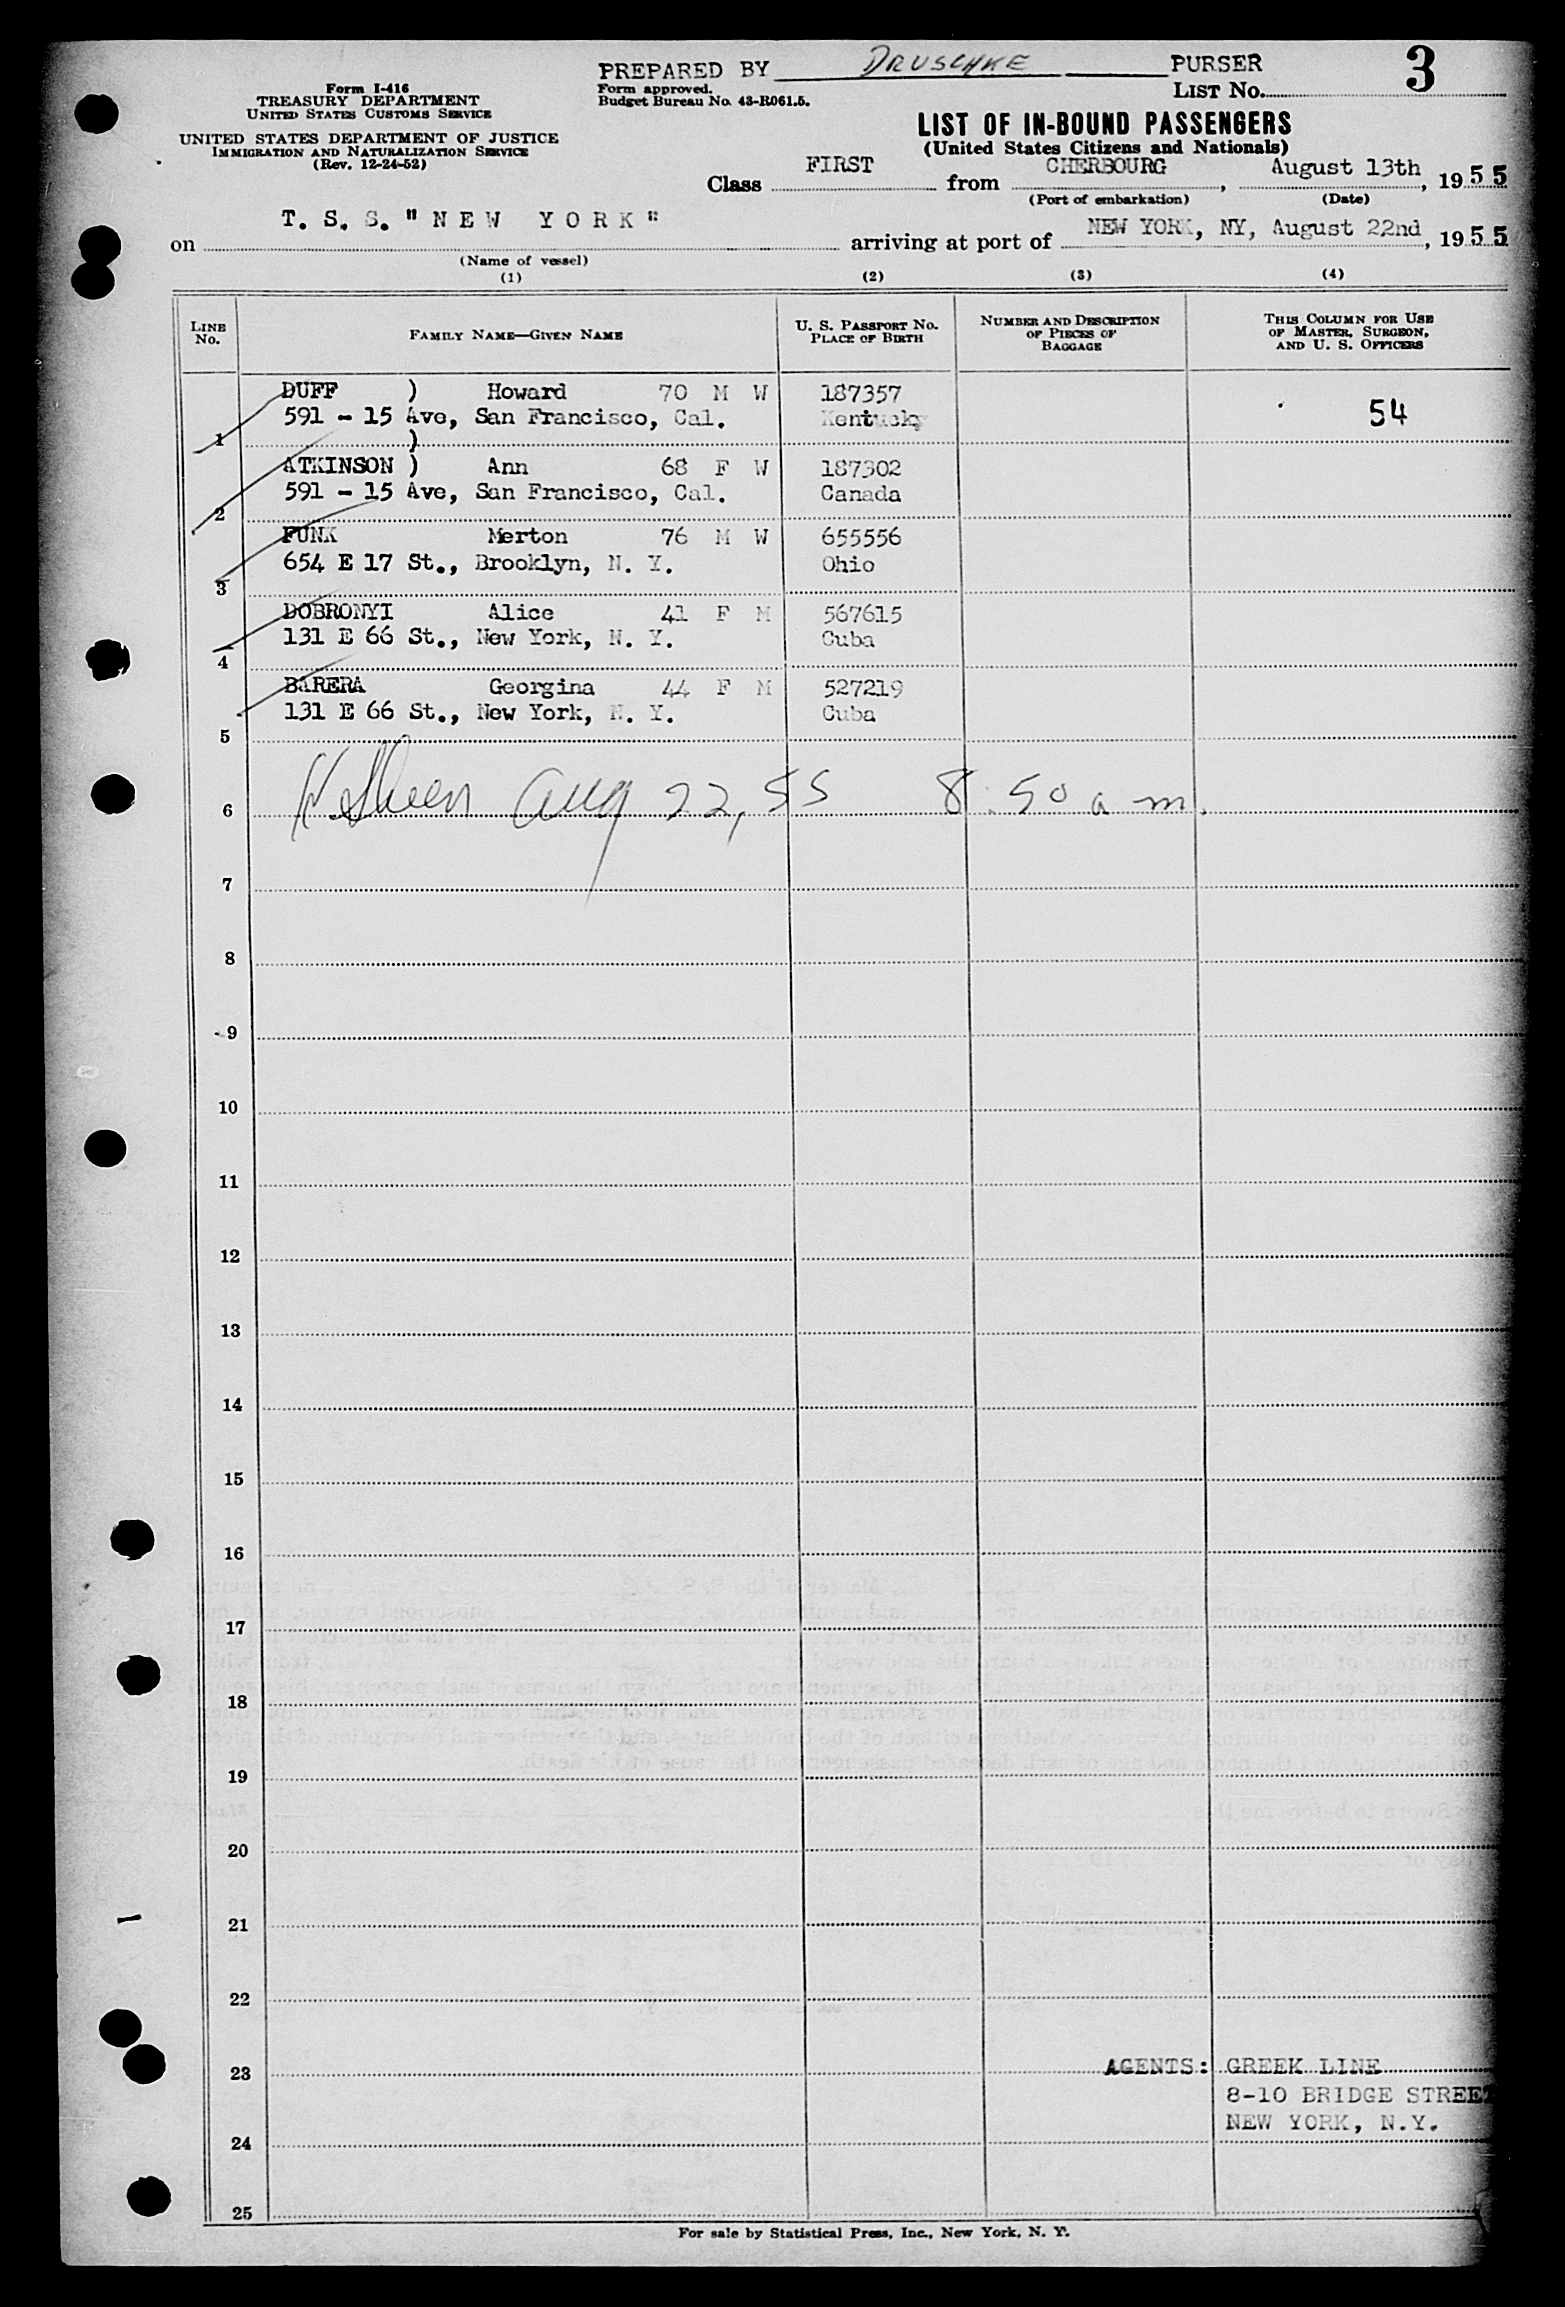 PREPARED BY DRUSCHKE PURSER
3
Form I-416
TREASURY DEPARTMENT
UNITED STATES CUSTOMS SERVICE
UNITED STATES DEPARTMENT OF JUSTICE
IMMIGRATION AND NATURALIZATION SERVICE
(Rev. 12-24-52)
Form approved.
Budget Bureau No. 43-R061.5.
LIST No.
LIST OF IN-BOUND PASSENGERS
(United States Citizens and Nationals)
Class FIRST from CHERBOURG, August 13th, 1955
(Port of embarkation) (Date)
on T. S. S. "NEW YORK" arriving at port of NEW YORK, NY, August 22nd, 1955
(Name of vessel)
(1) (2) (3) (4)
LINE No.
FAMILY NAME—GIVEN NAME
U. S. PASSPORT No. PLACE OF BIRTH
NUMBER AND DESCRIPTION OF PIECES OF BAGGAGE
THIS COLUMN FOR USE OF MASTER, SURGEON, AND U. S. OFFICERS
DUFF ) Howard 70 M W 187357
591 - 15 Ave, San Francisco, Cal. Kentucky 54
1 )
ATKINSON ) Ann 68 F W 187302
591 - 15 Ave, San Francisco, Cal. Canada
2
FUNK Merton 76 M W 655556
654 E 17 St., Brooklyn, N. Y. Ohio
3
DOBRONYI Alice 41 F M 567615
131 E 66 St., New York, N. Y. Cuba
4
BARERA Georgina 44 F M 527219
131 E 66 St., New York, N. Y. Cuba
5
6 Aug 22, 55 8:50 a m.
7
8
9
10
11
12
13
14
15
16
17
18
19
20
21
22
23 AGENTS: GREEK LINE
8-10 BRIDGE STREET
NEW YORK, N.Y.
24
25
For sale by Statistical Press, Inc., New York, N. Y.